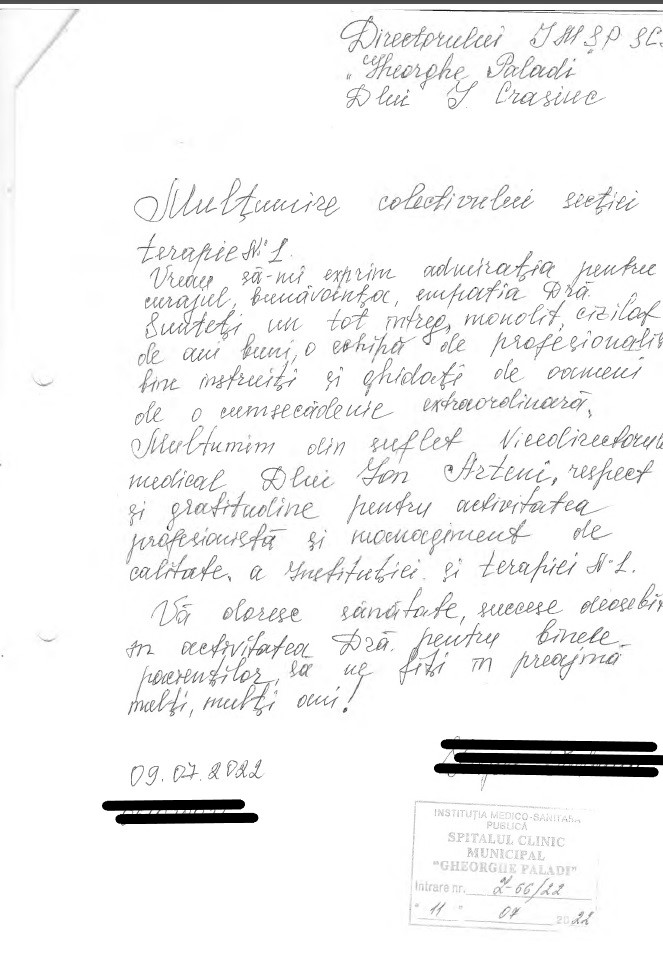 Directorului IMSP SC
"Gheorghe Paladi
Dlui I Crasiuc
Mulțumire colectivului secției
terapie Nr 1.
Vreau să-mi exprim admirația pentru
curajul, bunăvoința, empatia Dră.
Sunteți un tot întreg, monolit, cizilat
de ani buni, o echipă de profesioniști
bine instruiți și ghidați de oameni
de o cumsecădenie extraordinară.
Mulțumim din suflet Vicedirectorul
medical Dlui Ion Arteni, respect
și gratitudine pentru activitatea
profesionistă și management de
calitate. a Instituției și terapiei Nr 1.
Vă doresc sănătate, succese deosebi
în activitatea Dră. pentru binele
pacenților, să ne fiți în preajmă
mulți, mulți ani!
09.07.2022
INSTITUȚIA MEDICO-SANITARĂ
PUBLICĂ
SPITALUL CLINIC
MUNICIPAL
"GHEORGHE PALADI"
Intrare nr. Z-66/22
"11" 07 2022